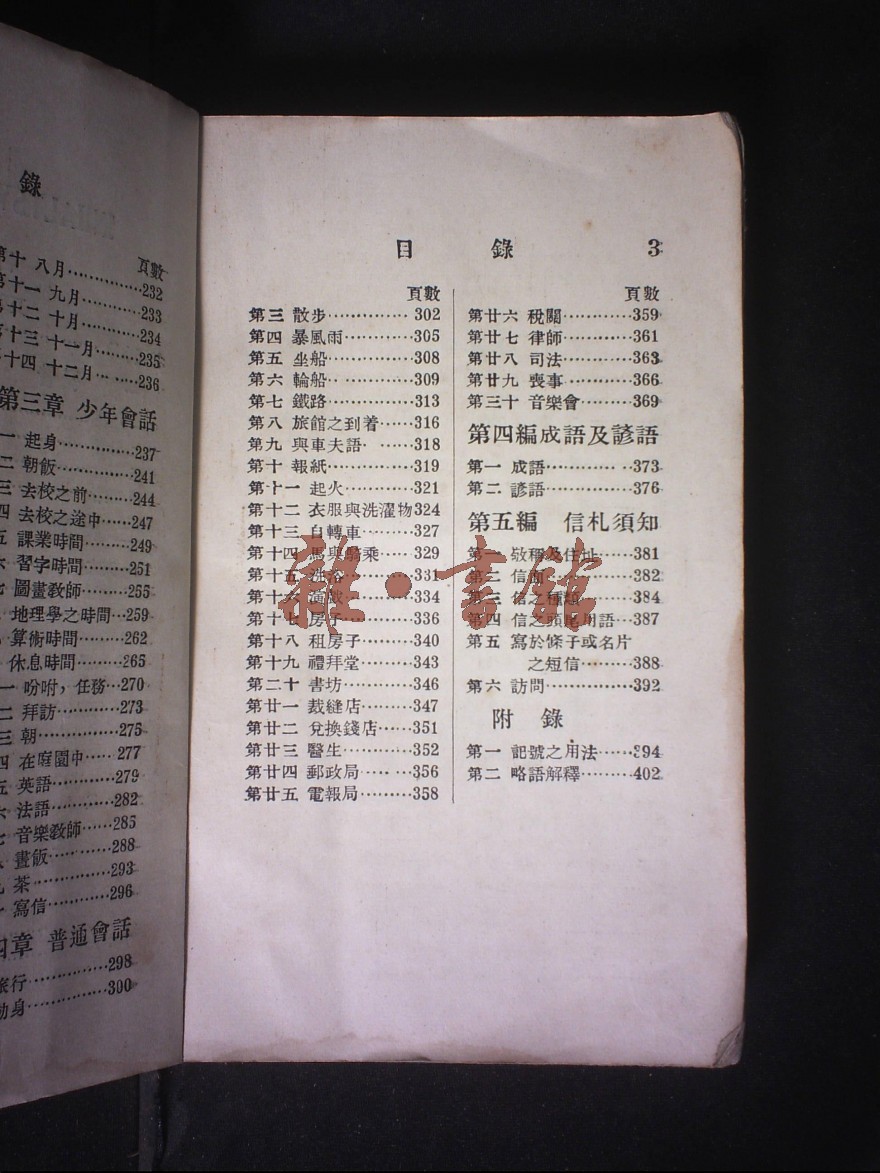 錄
頁數
第十 八月 232
第十一 九月 233
第十二 十月 234
第十三 十一月 235
第十四 十二月 236
第三章 少年會話
一 起身 237
二 朝飯 241
三 去校之前 244
四 去校之途中 247
五 課業時間 249
六 習字時間 251
七 圖畫教師 255
地理學之時間 259
算術時間 262
休息時間 265
一 吩咐，任務 270
二 拜訪 273
三 朝 275
四 在庭園中 277
五 英語 279
六 法語 282
七 音樂教師 285
晝飯 288
九 茶 293
寫信 296
四章 普通會話
旅行 298
動身 300
目 錄 3
頁數
第三 散步 302
第四 暴風雨 305
第五 坐船 308
第六 輪船 309
第七 鐵路 313
第八 旅館之到着 316
第九 與車夫語 318
第十 報紙 319
第十一 起火 321
第十二 衣服與洗濯物 324
第十三 自轉車 327
第十四 馬與騎乘 329
第十五 洗浴 331
第十六 演戲 334
第十七 房子 336
第十八 租房子 340
第十九 禮拜堂 343
第二十 書坊 346
第廿一 裁縫店 347
第廿二 兌換錢店 351
第廿三 醫生 352
第廿四 郵政局 356
第廿五 電報局 358
頁數
第廿六 稅關 359
第廿七 律師 361
第廿八 司法 363
第廿九 喪事 366
第三十 音樂會 369
第四編 成語及諺語
第一 成語 373
第二 諺語 376
第五編 信札須知
第一 敬稱及住址 381
第二 信面 382
第三 信之種類 384
第四 信之頭尾用語 387
第五 寫於條子或名片
之短信 388
第六 訪問 392
附 錄
第一 記號之用法 394
第二 略語解釋 402
雜·書館